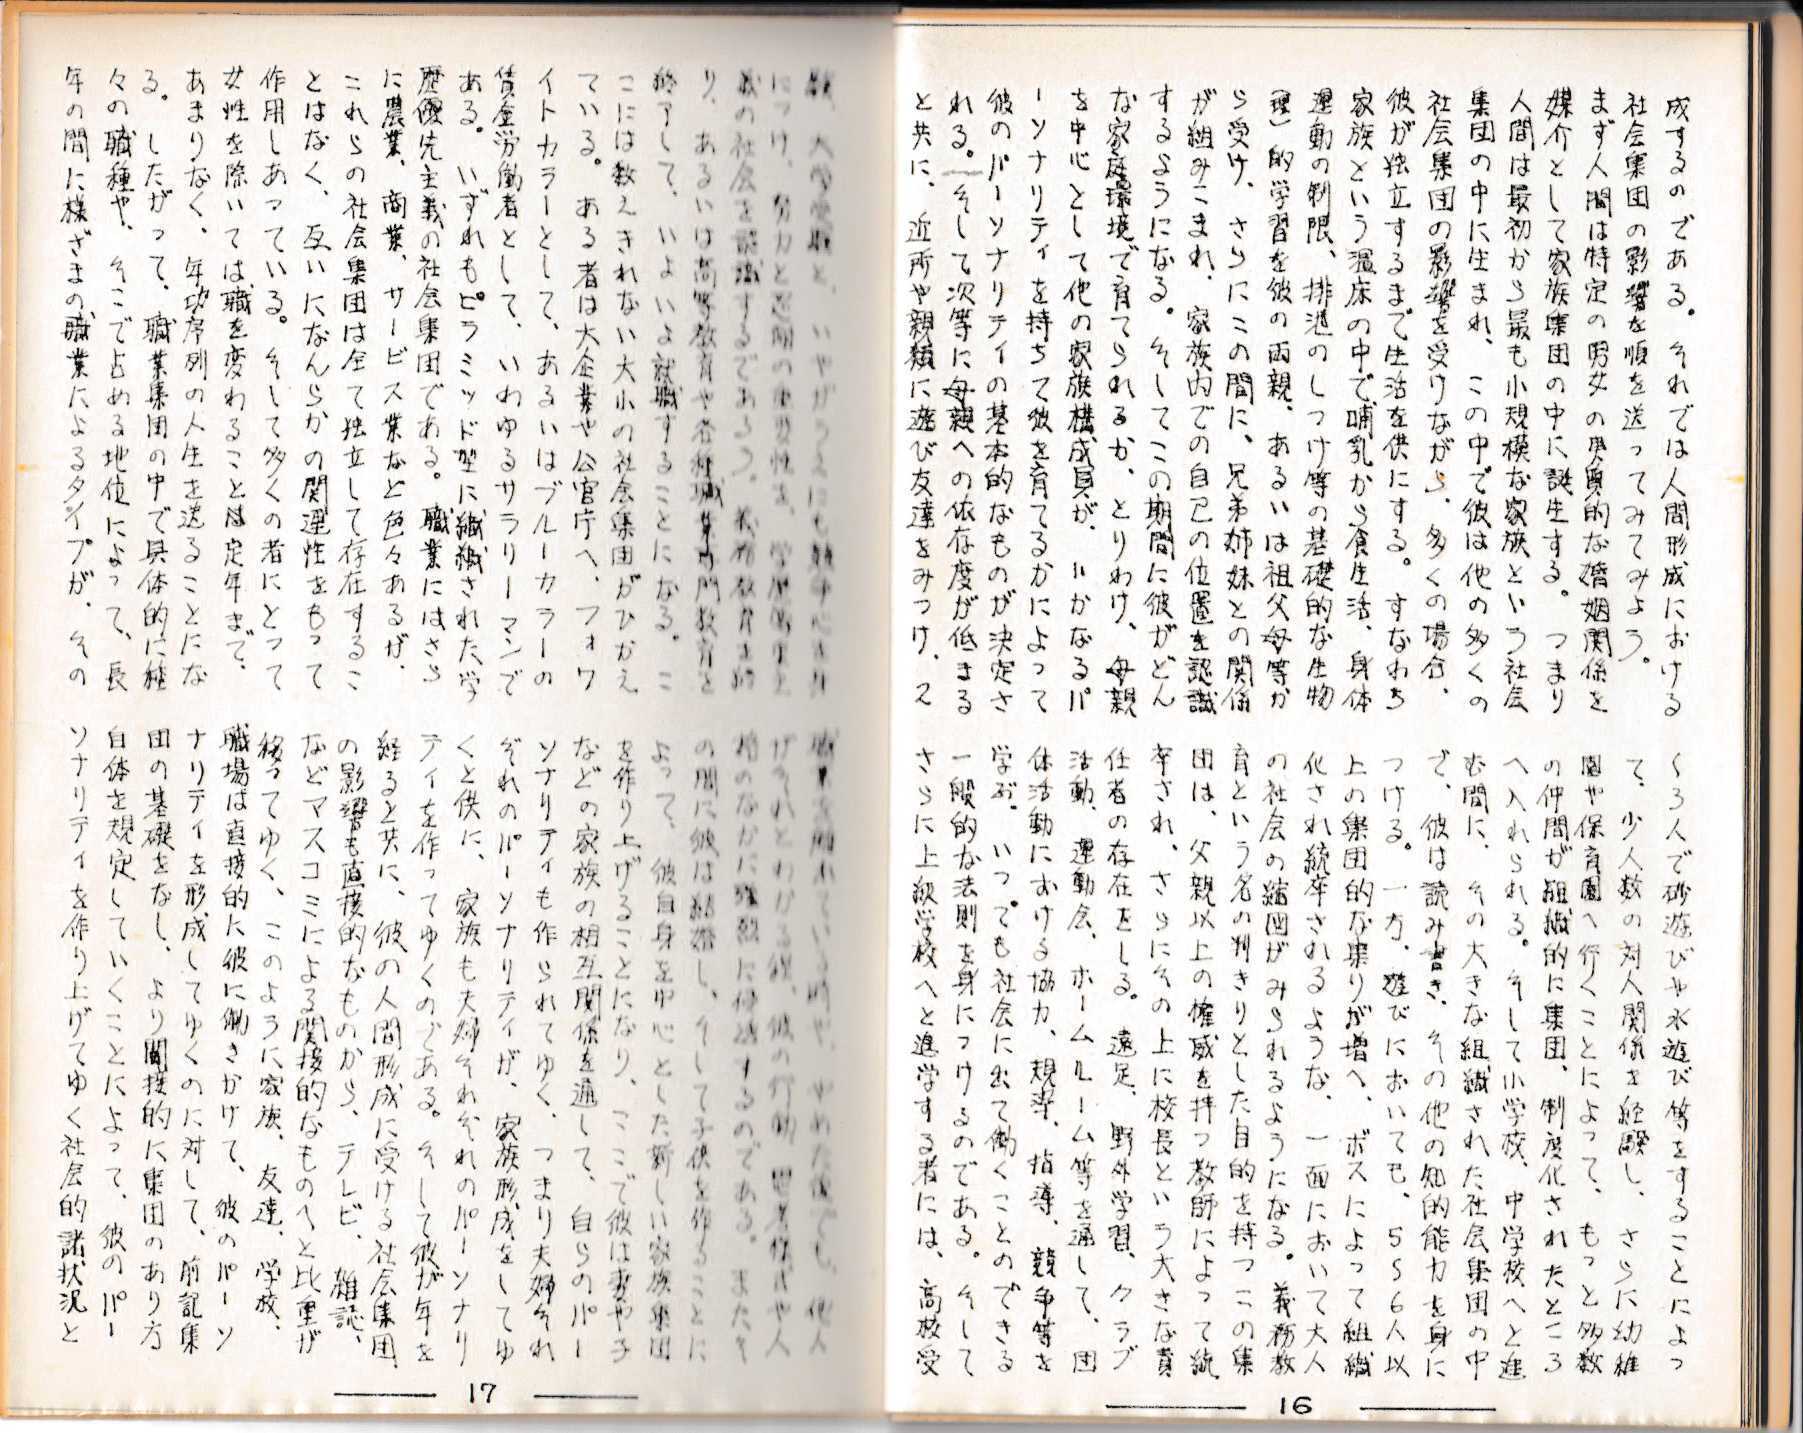 成するのである。それでは人間形成における
社会集団の影響を順を送ってみてみよう。
まず人間は特定の男女の異質的な婚姻関係を
媒介として家族集団の中に誕生する。つまり
人間は最初から最も小規模な家族という社会
集団の中に生まれ、この中で彼は他の多くの
社会集団の影響を受けながら、多くの場合、
彼が独立するまで生活を供にする。すなわち
家族という温床の中で哺乳から食生活、身体
運動の制限、排泄のしつけ等の基礎的な生物
(理)的学習を彼の両親、あるいは祖父母等か
ら受け、さらにこの間に、兄弟姉妹との関係
が組みこまれ、家族内での自己の位置を認識
するようになる。そしてこの期間に彼がどん
な家庭環境で育てられるか、とりわけ、母親
を中心として他の家族構成員が、いかなるパ
ーソナリティを持ちて彼を育てるかによって
彼のパーソナリティの基本的なものが決定さ
れる。そして次等に母親への依存度が低まる
と共に、近所や親類に遊び友達をみつけ、2
〜3人で砂遊びや水遊び等をすることによっ
て、少人数の対人関係を経験し、さらに幼稚
園や保育園へ行くことによって、もっと多数
の仲間が組織的に集団、制度化されたところ
へ入れられる。そして小学校、中学校へと進
む間に、その大きな組織された社会集団の中
で、彼は読み書き、その他の知的能力を身に
つける。一方、遊びにおいても、5〜6人以
上の集団的な集りが増へ、ボスによって組織
化され統率されるような、一面において大人
の社会の縮図がみられるようになる。義務教
育という名の判きりとした目的を持つこの集
団は、父親以上の権威を持つ教師によって統
率され、さらにその上に校長という大きな責
任者の存在をしる。遠足、野外学習、クラブ
活動、運動会、ホームルーム等を通して、団
体活動における協力、規律、指導、競争等を
学ぶ。いつっても社会に出て働くことのできる
一般的な法則を身につけるのである。そして
さらに上級学校へと進学する者には、高校受
16
験、大学受験と、いやがうえにも競争心を身
につけ、努力と忍耐の重要性を、学歴偏重主
義の社会を認識するであろう。義務教育を終
り、あるいは高等教育や各種職業専門教育を
終了して、いよいよ就職することになる。こ
こには数えきれない大小の社会集団がひかえ
ている。ある者は大企業や公官庁へ、フォワ
イトカラーとして、あるいはブルーカラーの
賃金労働者として、いわゆるサラリーマンで
ある。いずれもピラミッド型に組織された学
歴優先主義の社会集団である。職業にはさら
に農業、商業、サービス業など色々あるが、
これらの社会集団は全て独立して存在するこ
とはなく、互いになんらかの関連性をもって
作用しあっている。そして多くの者にとって
女性を除いては職を変わることは定年まで、
あまりなく、年功序列の人生を送ることにな
る。したがって、職業集団の中で具体的に種
々の職種や、そこで占める地位によって、長
年の間に様ざまの職業によるタイプが、その
職業を離れている時や、やめた後でも、他人
がそれとわかる程、彼の行動、思考様式や人
格のなかに強烈に浸透するのである。またそ
の間に彼は結婚し、そして子供を作ることに
よって、彼自身を中心とした新しい家族集団
を作り上げることになり、ここで彼は妻や子
などの家族の相互関係を通して、自らのパー
ソナリティも作られてゆく、つまり夫婦それ
ぞれのパーソナリティが、家族形成をしてゆ
くと供に、家族も夫婦それぞれのパーソナリ
ティを作ってゆくのである。そして彼が年を
経ると共に、彼の人間形成に受ける社会集団
の影響も直接的なものから、テレビ、雑誌、
などマスコミによる間接的なものへと比重が
移ってゆく、このように家族、友達、学校、
職場は直接的に彼に働きかけて、彼のパーソ
ナリティを形成してゆくのに対して、前記集
団の基礎をなし、より間接的に集団のあり方
自体を規定していくことによって、彼のパー
ソナリティを作り上げてゆく社会的諸状況と
17